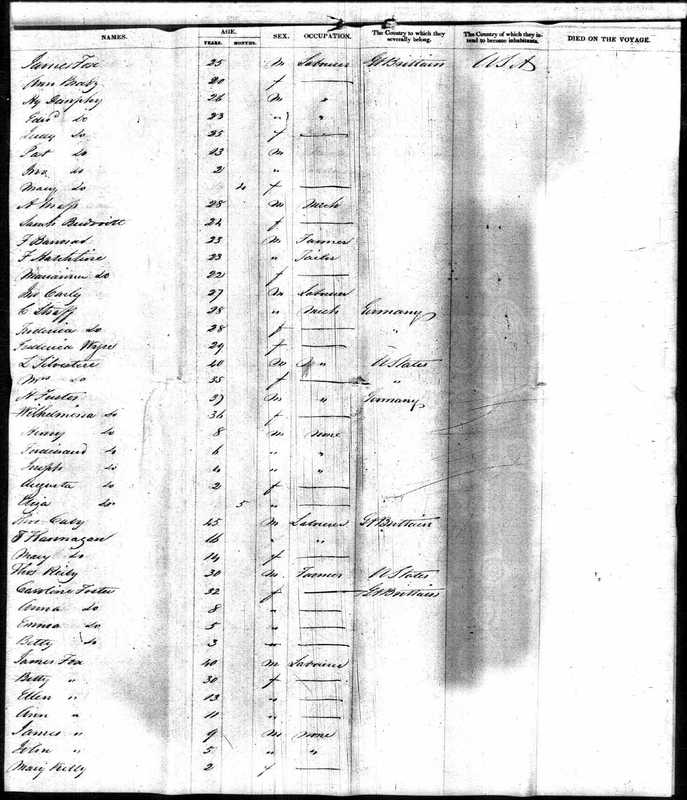 NAMES. AGE. YEARS. MONTHS. SEX. OCCUPATION. The Country to which they severally belong. The Country of which they intend to become inhabitants. DIED ON THE VOYAGE.
James Fox 25 m Labourer Gt Brittain U S A
Ann 20 f
Hy Dunphy 26 m "
Edwd do 23 " "
Judy do 25 f
Pat do 13 m
Jno do 2 "
Mary do 4 f
28 m Mech
Sarah 24 f
F 23 m Farmer
F 23 " Tailor
do 22 f
Jno 27 m Labourer
C 28 " Mech Germany
Frederica do 28 f "
Frederica 29 f
L Silvestere 40 m " U States
Mrs do 35 f "
H Foster 37 m " Germany
Wilhelmina do 36 f
Henry do 8 m None
Ferdinand do 6 " "
Joseph do 4 " "
Augusta do 2 f
Eliza do 5 "
45 m Labourer Gt Brittain
Flannagan 16 " "
Mary do 14 f
Thos 30 m Farmer U States
Caroline Foster 32 f Gt Brittain
Anna do 8 "
Emma do 5 "
Betty do 3 "
James Fox 40 m Labourer
Betty " 30 f
Ellen " 13 "
Ann " 11 "
James " 9 m None
John " 5 " "
Mary Kelly 2 f